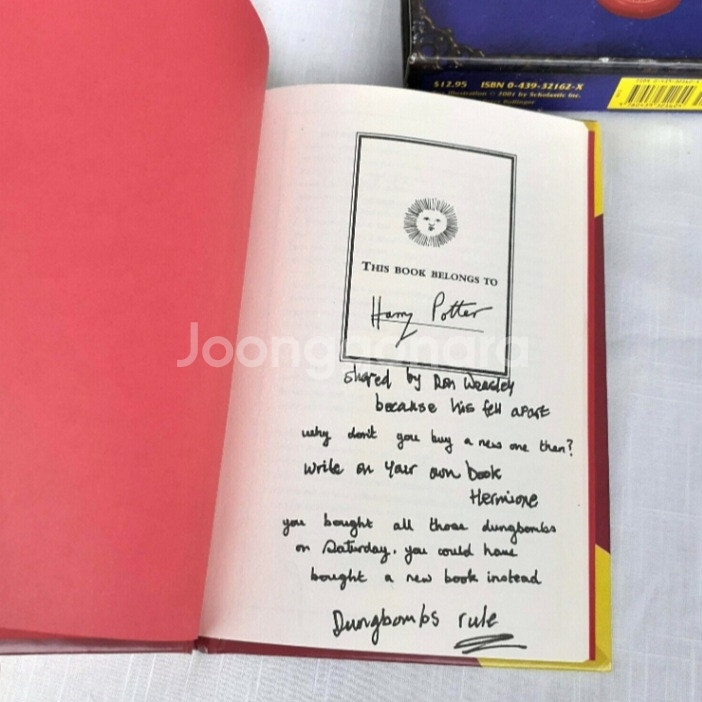 $12.95 ISBN 0-439-32162-X
2001 by Scholastic Inc.
THIS BOOK BELONGS TO
Harry Potter
Joonggonara
shared by Ron Weasley
because his fell apart
why don't you buy a new one then?
write on your own book
Hermione
you bought all those dungbombs
on Saturday. you could have
bought a new book instead
Dungbombs rule